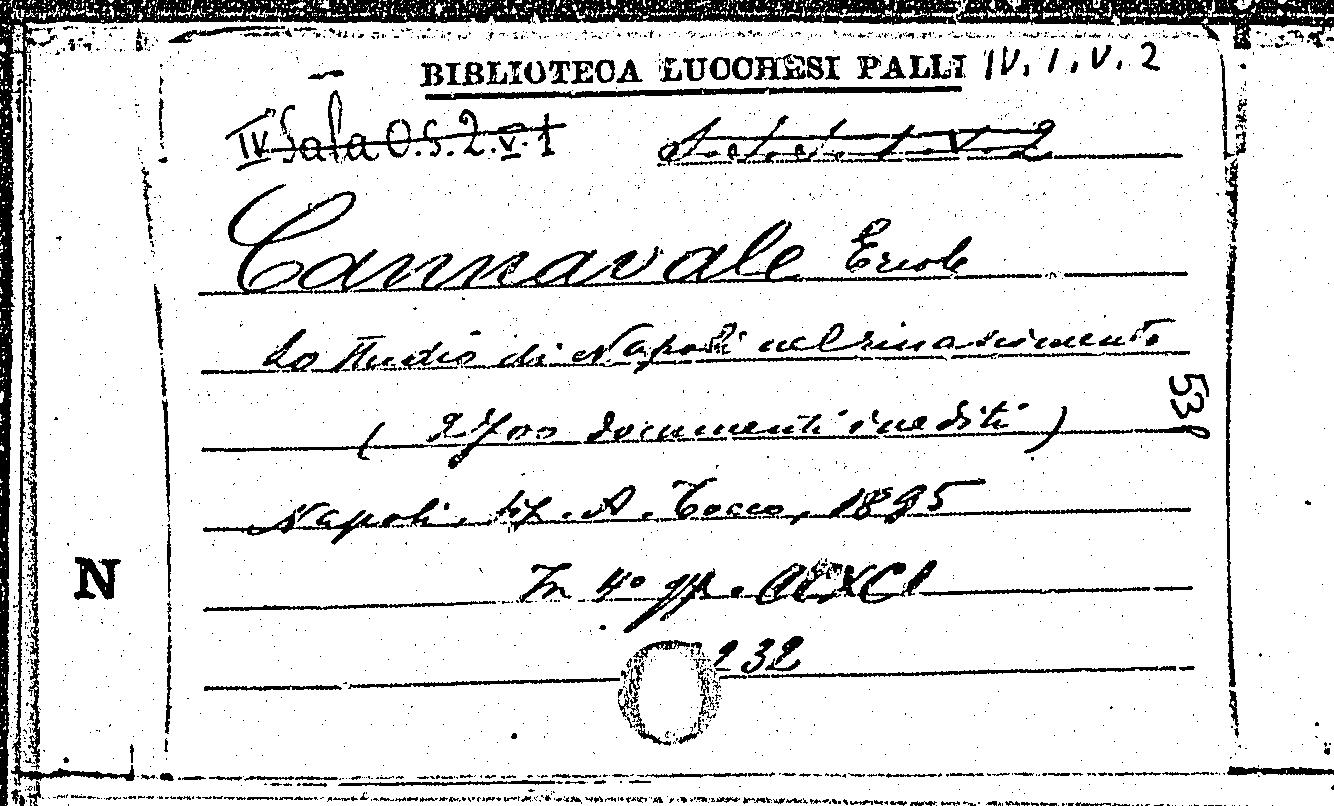 BIBLIOTECA LUCCHESI PALLI IV. 1. V. 2
IV Sala O.S.2.V.1
Cannavale Ercole
Lo Studio di Napoli nel rinascimento
(2700 documenti inediti)
Napoli, tip. A. Tocco, 1895
In 4° pp. CCXCI
232
53
N